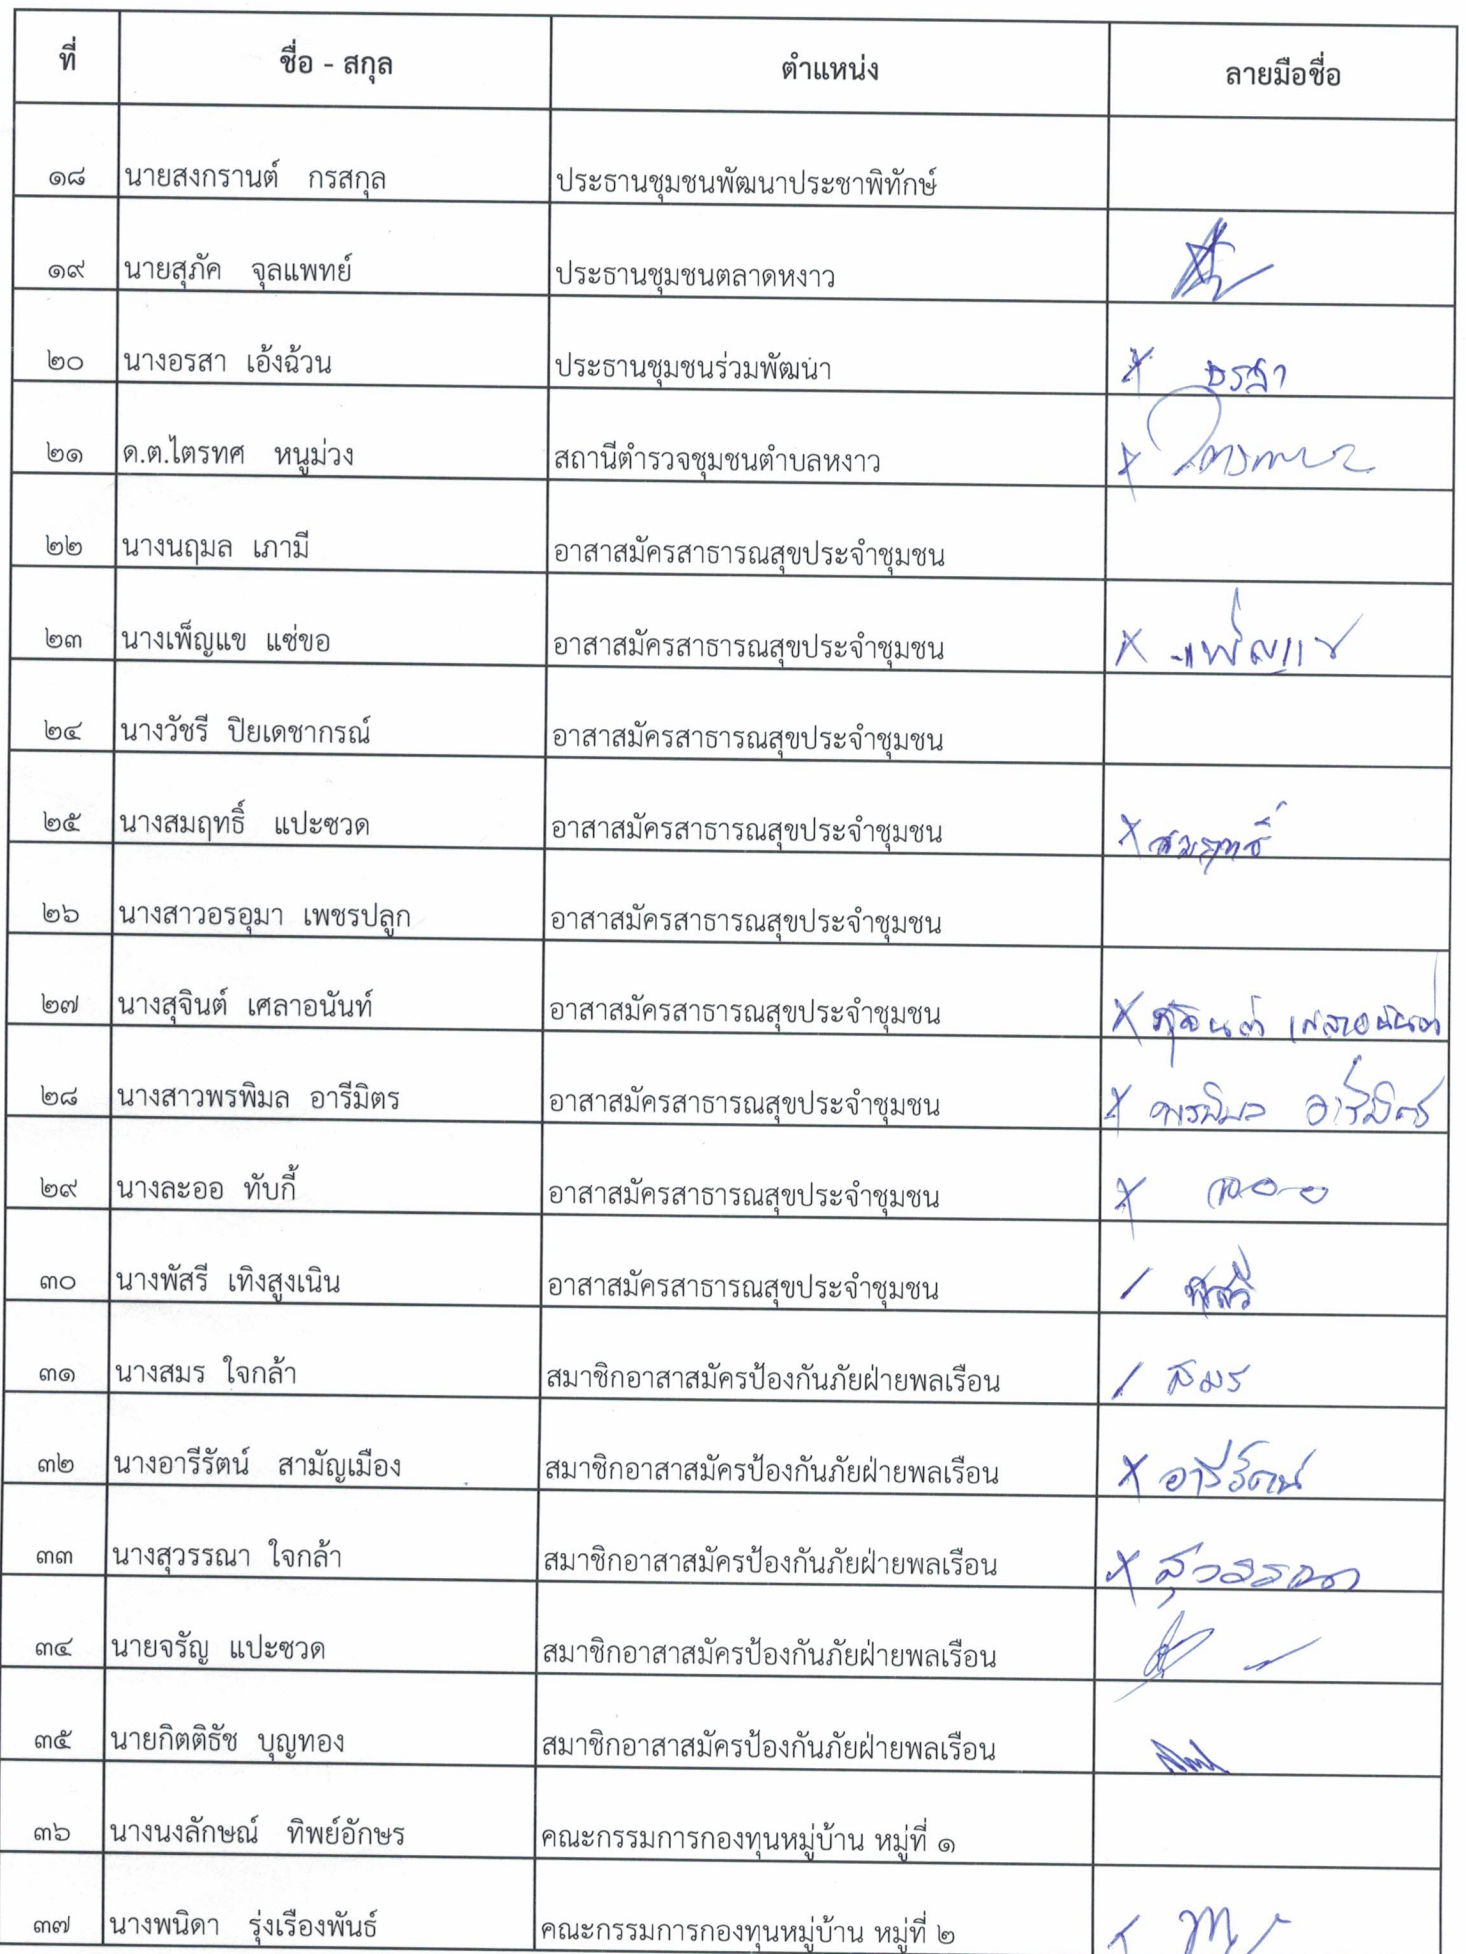 ที่ ชื่อ - สกุล ตำแหน่ง ลายมือชื่อ
๑๘ นายสงกรานต์ กรสกุล ประธานชุมชนพัฒนาประชาพิทักษ์
๑๙ นายสุภัค จุลแพทย์ ประธานชุมชนตลาดหงาว
๒๐ นางอรสา เอ้งฉ้วน ประธานชุมชนร่วมพัฒนา อรสา
๒๑ ด.ต.ไตรทศ หนูม่วง สถานีตำรวจชุมชนตำบลหงาว
๒๒ นางนฤมล เภามี อาสาสมัครสาธารณสุขประจำชุมชน
๒๓ นางเพ็ญแข แซ่ขอ อาสาสมัครสาธารณสุขประจำชุมชน เพ็ญแข
๒๔ นางวัชรี ปิยเดชากรณ์ อาสาสมัครสาธารณสุขประจำชุมชน
๒๕ นางสมฤทธิ์ แปะซวด อาสาสมัครสาธารณสุขประจำชุมชน สมฤทธิ์
๒๖ นางสาวอรอุมา เพชรปลูก อาสาสมัครสาธารณสุขประจำชุมชน
๒๗ นางสุจินต์ เศลาอนันท์ อาสาสมัครสาธารณสุขประจำชุมชน สุจินต์
๒๘ นางสาวพรพิมล อารีมิตร อาสาสมัครสาธารณสุขประจำชุมชน พรพิมล อารีมิตร
๒๙ นางละออ ทับกี้ อาสาสมัครสาธารณสุขประจำชุมชน ละออ
๓๐ นางพัสรี เทิงสูงเนิน อาสาสมัครสาธารณสุขประจำชุมชน พัสรี
๓๑ นางสมร ใจกล้า สมาชิกอาสาสมัครป้องกันภัยฝ่ายพลเรือน สมร
๓๒ นางอารีรัตน์ สามัญเมือง สมาชิกอาสาสมัครป้องกันภัยฝ่ายพลเรือน อารีรัตน์
๓๓ นางสุวรรณา ใจกล้า สมาชิกอาสาสมัครป้องกันภัยฝ่ายพลเรือน สุวรรณา
๓๔ นายจรัญ แปะซวด สมาชิกอาสาสมัครป้องกันภัยฝ่ายพลเรือน
๓๕ นายกิตติธัช บุญทอง สมาชิกอาสาสมัครป้องกันภัยฝ่ายพลเรือน
๓๖ นางนงลักษณ์ ทิพย์อักษร คณะกรรมการกองทุนหมู่บ้าน หมู่ที่ ๑
๓๗ นางพนิดา รุ่งเรืองพันธ์ คณะกรรมการกองทุนหมู่บ้าน หมู่ที่ ๒